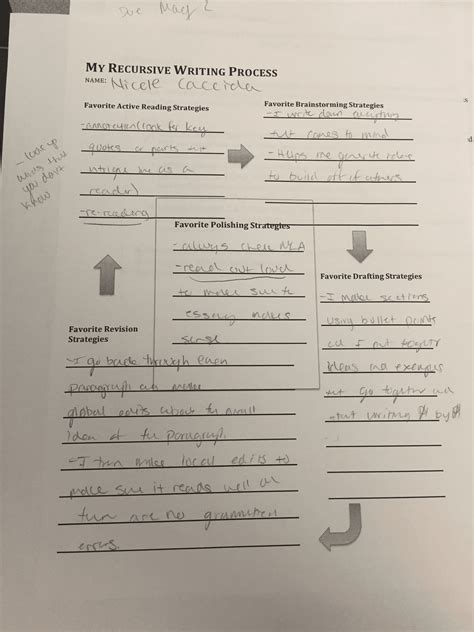 Due May 2
MY RECURSIVE WRITING PROCESS
NAME: Nicole
Favorite Active Reading Strategies
- annotation (look for key
quotes or parts that
intrigue me as a
reader)
- re-reading
- look up
words that
you don't
know
Favorite Brainstorming Strategies
- I write down everything
that comes to mind
- Helps me generate ideas
to build off of others
Favorite Polishing Strategies
- always check MLA
- read out loud
to make sure the
essay makes
sense
Favorite Drafting Strategies
- I make sections
using bullet points
and I put together
Ideas and examples
that go together and
- start writing ¶ by ¶
Favorite Revision
Strategies
- I go back through each
paragraph and make
global edits about the
idea of the paragraph
- I then make local edits to
make sure it reads well and
there are no
errors.